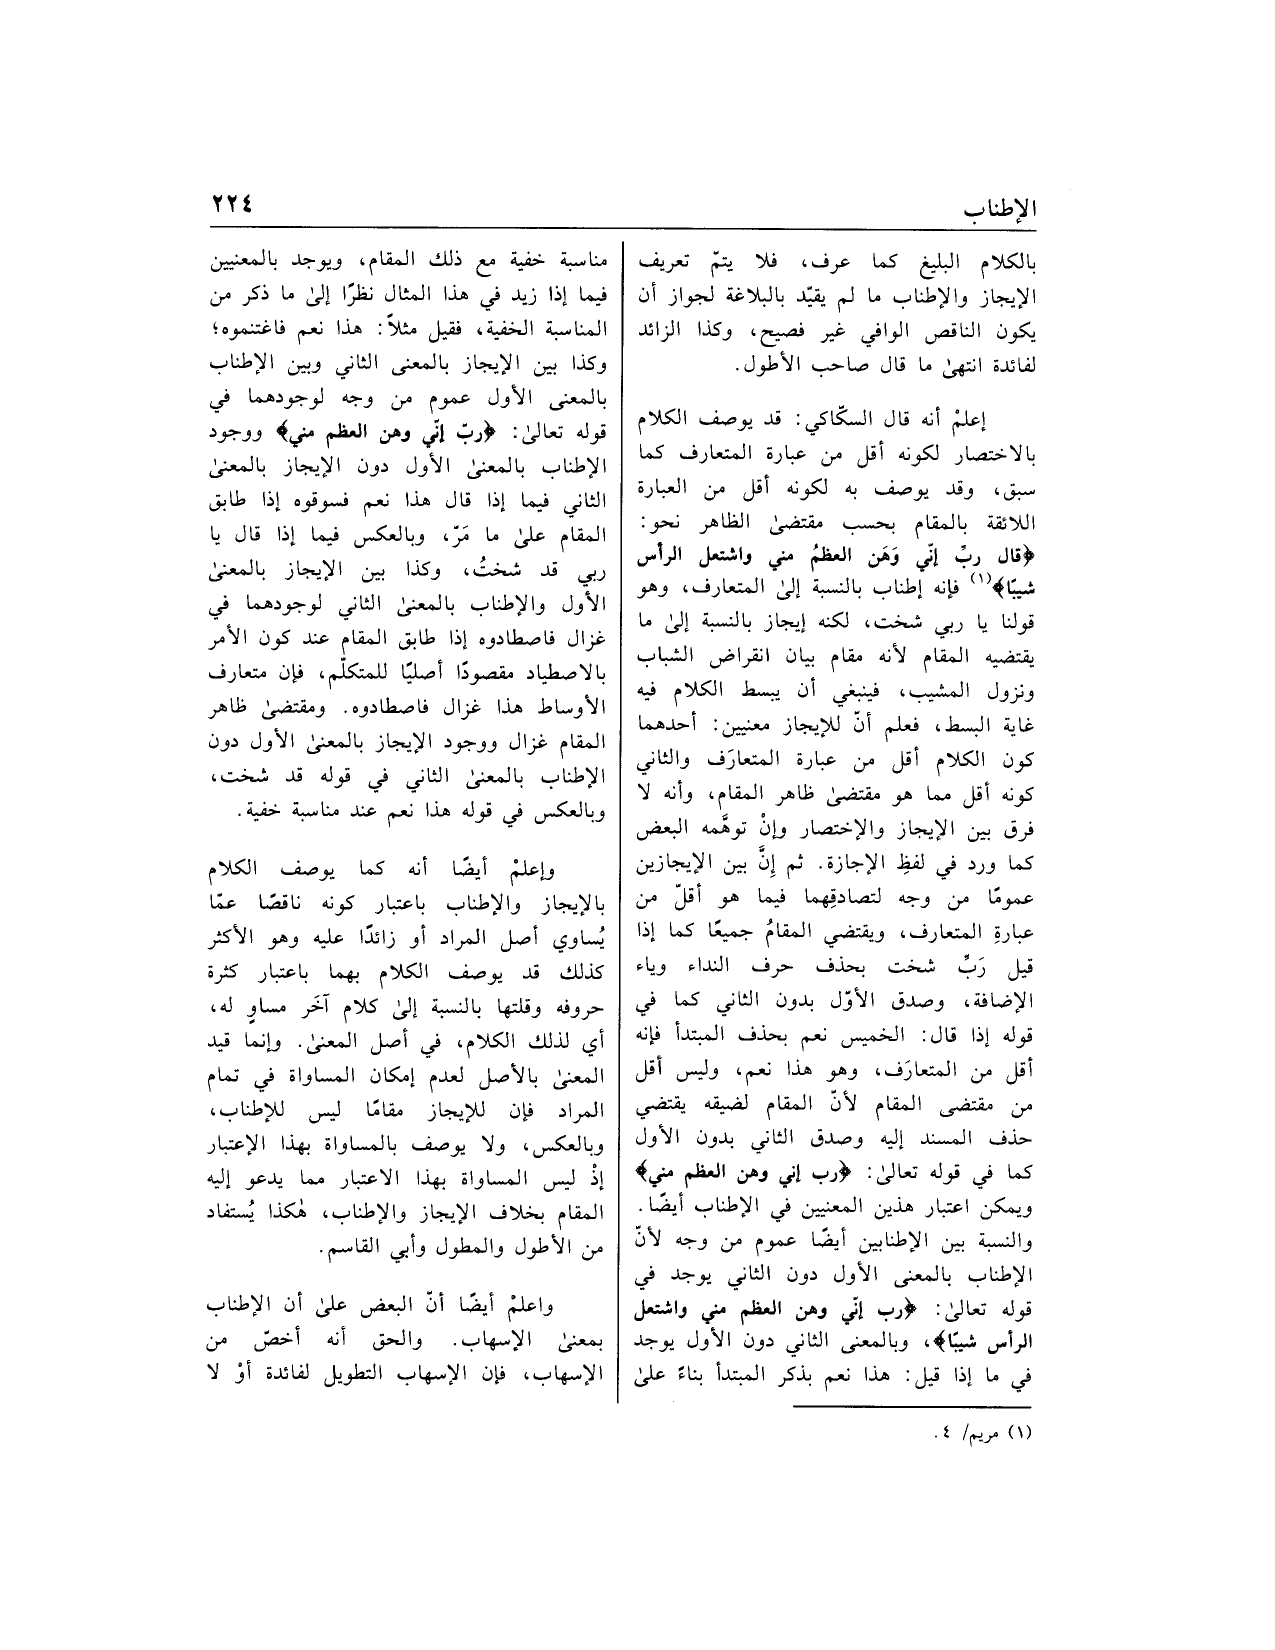 الإطناب
٢٢٤
بالكلام البليغ كما عرف، فلا يتمّ تعريف
الإيجاز والإطناب ما لم يقيّد بالبلاغة لجواز أن
يكون الناقص الوافي غير فصيح، وكذا الزائد
لفائدة انتهىٰ ما قال صاحب الأطول.
إعلمْ أنه قال السكّاكي: قد يوصف الكلام
بالاختصار لكونه أقل من عبارة المتعارف كما
سبق، وقد يوصف به لكونه أقل من العبارة
اللائقة بالمقام بحسب مقتضىٰ الظاهر نحو:
﴿قال ربِّ إنّي وَهَن العظمُ مني واشتعل الرأس
شيبًا﴾(١) فإنه إطناب بالنسبة إلىٰ المتعارف، وهو
قولنا يا ربي شخت، لكنه إيجاز بالنسبة إلىٰ ما
يقتضيه المقام لأنه مقام بيان انقراض الشباب
ونزول المشيب، فينبغي أن يبسط الكلام فيه
غاية البسط، فعلم أنّ للإيجاز معنيين: أحدهما
كون الكلام أقل من عبارة المتعارَف والثاني
كونه أقل مما هو مقتضىٰ ظاهر المقام، وأنه لا
فرق بين الإيجاز والإختصار وإنْ توهَّمه البعض
كما ورد في لفظِ الإجازة. ثم إنَّ بين الإيجازين
عمومًا من وجه لتصادقِهما فيما هو أقلّ من
عبارةِ المتعارف، ويقتضي المقامُ جميعًا كما إذا
قيل رَبِّ شخت بحذف حرف النداء وياء
الإضافة، وصدق الأوّل بدون الثاني كما في
قوله إذا قال: الخميس نعم بحذف المبتدأ فإنه
أقل من المتعارَف، وهو هذا نعم، وليس أقل
من مقتضى المقام لأنّ المقام لضيقه يقتضي
حذف المسند إليه وصدق الثاني بدون الأول
كما في قوله تعالىٰ: ﴿رب إني وهن العظم مني﴾
ويمكن اعتبار هذين المعنيين في الإطناب أيضًا.
والنسبة بين الإطنابين أيضًا عموم من وجه لأنّ
الإطناب بالمعنى الأول دون الثاني يوجد في
قوله تعالىٰ: ﴿رب إنّي وهن العظم مني واشتعل
الرأس شيبًا﴾، وبالمعنى الثاني دون الأول يوجد
في ما إذا قيل: هذا نعم بذكر المبتدأ بناءً علىٰ
مناسبة خفية مع ذلك المقام، ويوجد بالمعنيين
فيما إذا زيد في هذا المثال نظرًا إلىٰ ما ذكر من
المناسبة الخفية، فقيل مثلاً: هذا نعم فاغتنموه؛
وكذا بين الإيجاز بالمعنى الثاني وبين الإطناب
بالمعنى الأول عموم من وجه لوجودهما في
قوله تعالىٰ: ﴿ربّ إنّي وهن العظم مني﴾ ووجود
الإطناب بالمعنىٰ الأول دون الإيجاز بالمعنىٰ
الثاني فيما إذا قال هذا نعم فسوقوه إذا طابق
المقام علىٰ ما مَرّ، وبالعكس فيما إذا قال يا
ربي قد شختُ، وكذا بين الإيجاز بالمعنىٰ
الأول والإطناب بالمعنىٰ الثاني لوجودهما في
غزال فاصطادوه إذا طابق المقام عند كون الأمر
بالاصطياد مقصودًا أصليًا للمتكلّم، فإن متعارف
الأوساط هذا غزال فاصطادوه. ومقتضىٰ ظاهر
المقام غزال ووجود الإيجاز بالمعنىٰ الأول دون
الإطناب بالمعنىٰ الثاني في قوله قد شخت،
وبالعكس في قوله هذا نعم عند مناسبة خفية.
وإعلمْ أيضًا أنه كما يوصف الكلام
بالإيجاز والإطناب باعتبار كونه ناقصًا عمّا
يُساوي أصل المراد أو زائدًا عليه وهو الأكثر
كذلك قد يوصف الكلام بهما باعتبار كثرة
حروفه وقلتها بالنسبة إلىٰ كلام آخَر مساوٍ له،
أي لذلك الكلام، في أصل المعنىٰ. وإنما قيد
المعنىٰ بالأصل لعدم إمكان المساواة في تمام
المراد فإن للإيجاز مقامًا ليس للإطناب،
وبالعكس، ولا يوصف بالمساواة بهذا الإعتبار
إذْ ليس المساواة بهذا الاعتبار مما يدعو إليه
المقام بخلاف الإيجاز والإطناب، هٰكذا يُستفاد
من الأطول والمطول وأبي القاسم.
واعلمْ أيضًا أنّ البعض علىٰ أن الإطناب
بمعنىٰ الإسهاب. والحق أنه أخصّ من
الإسهاب، فإن الإسهاب التطويل لفائدة أوْ لا
(١) مريم/ ٤.